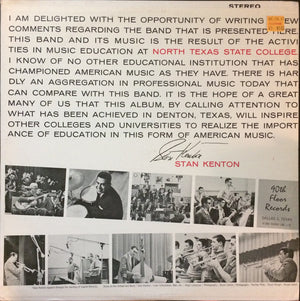 STEREO
I AM DELIGHTED WITH THE OPPORTUNITY OF WRITING A FEW
COMMENTS REGARDING THE BAND THAT IS PRESENTED HERE.
THIS BAND AND ITS MUSIC IS THE RESULT OF THE ACTIVI-
TIES IN MUSIC EDUCATION AT NORTH TEXAS STATE COLLEGE.
I KNOW OF NO OTHER EDUCATIONAL INSTITUTION THAT HAS
CHAMPIONED AMERICAN MUSIC AS THEY HAVE. THERE IS HARD-
LY AN AGGREGATION IN PROFESSIONAL MUSIC TODAY THAT
CAN COMPARE WITH THIS BAND. IT IS THE HOPE OF A GREAT
MANY OF US THAT THIS ALBUM, BY CALLING ATTENTION TO
WHAT HAS BEEN ACHIEVED IN DENTON, TEXAS, WILL INSPIRE
OTHER COLLEGES AND UNIVERSITIES TO REALIZE THE IMPORT-
ANCE OF EDUCATION IN THIS FORM OF AMERICAN MUSIC.
Stan Kenton
STAN KENTON
90th
Floor
Records
DALLAS 2, TEXAS